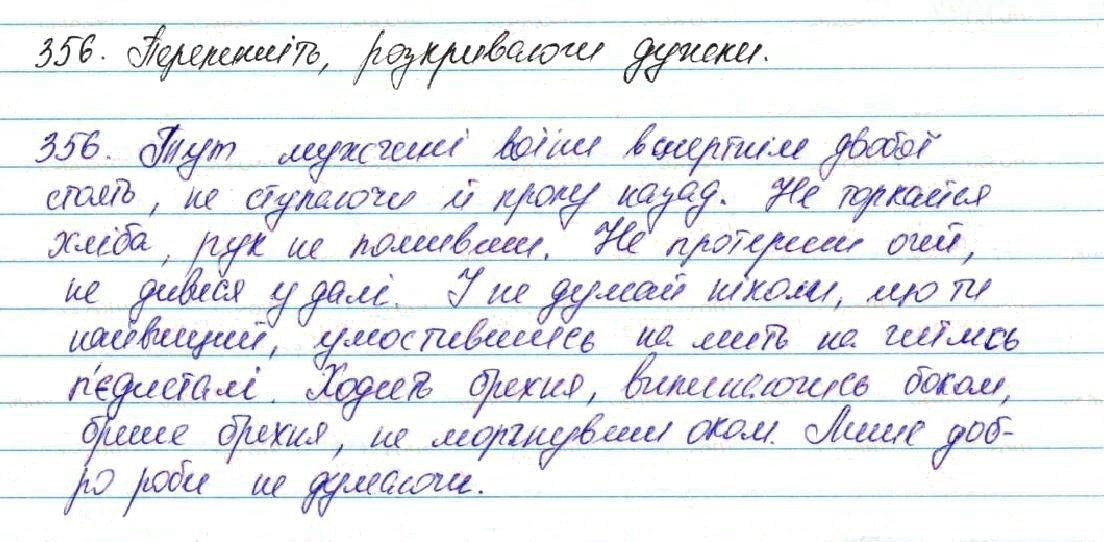 356. Перепишіть, розкриваючи дужки.
356. Тут мужчині воїни в смертнім двобої
стоять, не ступаючи й кроку назад. Не торкайся
хліба, рук не помивши. Не протерши очей,
не дивися у далі. І не думай ніколи, що ти
найвищий, умостившись на мить на чиїмсь
п'єдисталі. Ходить брехня, випинаючись боком,
бреше брехня, не моргнувши оком. Лише доб-
ро роби не думаючи.